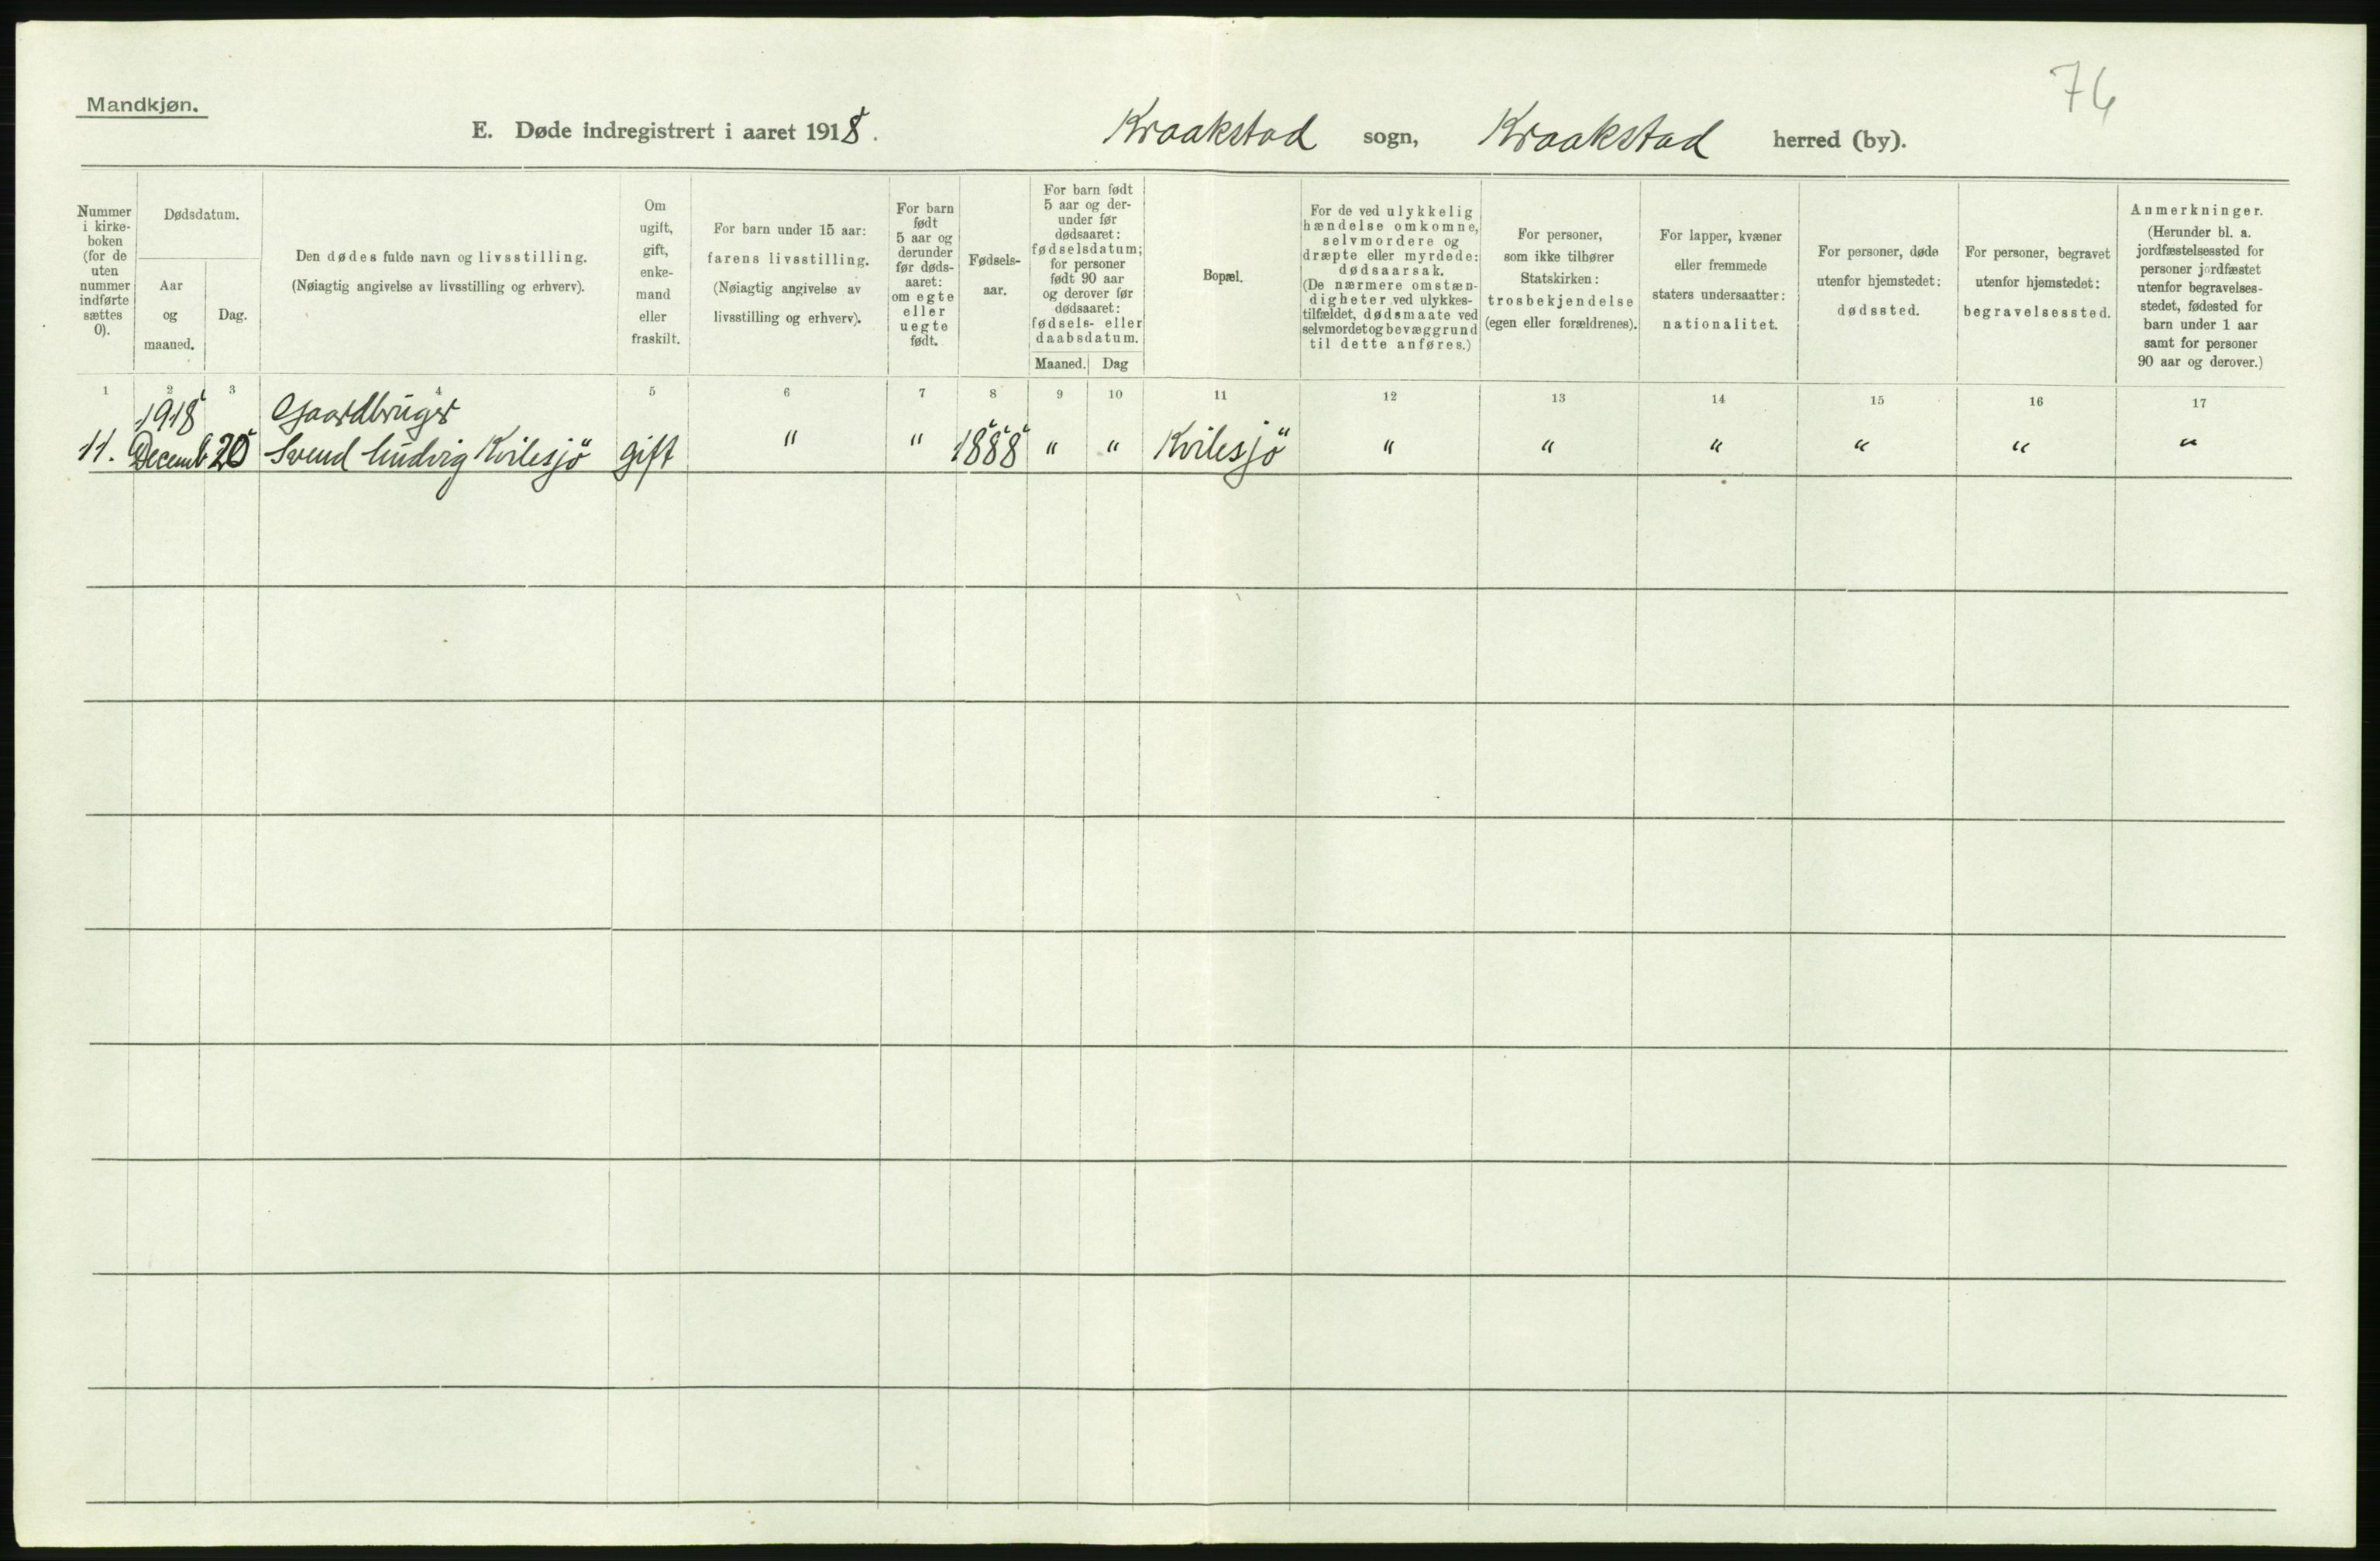 Mandkjøn.
76
E. Døde indregistrert i aaret 1918. Kraakstad sogn, Kraakstad herred (by).
Nummer
i kirke-
boken
(for de
uten
nummer
indførte
sættes
0).
Dødsdatum.
Aar
og
maaned.
Dag.
Den dødes fulde navn og livsstilling.
(Nøiagtig angivelse av livsstilling og erhverv).
Om
ugift,
gift,
enke-
mand
eller
fraskilt.
For barn under 15 aar:
farens livsstilling.
(Nøiagtig angivelse av
livsstilling og erhverv).
For barn
født
5 aar og
derunder
før døds-
aaret:
om egte
eller
uegte
født.
Fødsels-
aar.
For barn født
5 aar og der-
under før
dødsaaret:
fødselsdatum;
for personer
født 90 aar
og derover før
dødsaaret:
fødsels- eller
daabsdatum.
Maaned. Dag
Bopæl.
For de ved ulykkelig
hændelse omkomne,
selvmordere og
dræpte eller myrdede:
dødsaarsak.
(De nærmere omstæn-
digheter ved ulykkes-
tilfældet, dødsmaate ved
selvmordet og bevæggrund
til dette anføres.)
For personer,
som ikke tilhører
Statskirken:
trosbekjendelse
(egen eller forældrenes).
For lapper, kvæner
eller fremmede
staters undersaatter:
nationalitet.
For personer, døde
utenfor hjemstedet:
dødssted.
For personer, begravet
utenfor hjemstedet:
begravelsessted.
Anmerkninger.
(Herunder bl. a.
jordfæstelsessted for
personer jordfæstet
utenfor begravelses-
stedet, fødested for
barn under 1 aar
samt for personer
90 aar og derover.)
1 2 3 4 5 6 7 8 9 10 11 12 13 14 15 16 17
1918 Gaardbruger
11. Decemb 20 Svend Ludvig Kvilesjö gift " " 1888 " " Kvilesjö " " " " " "